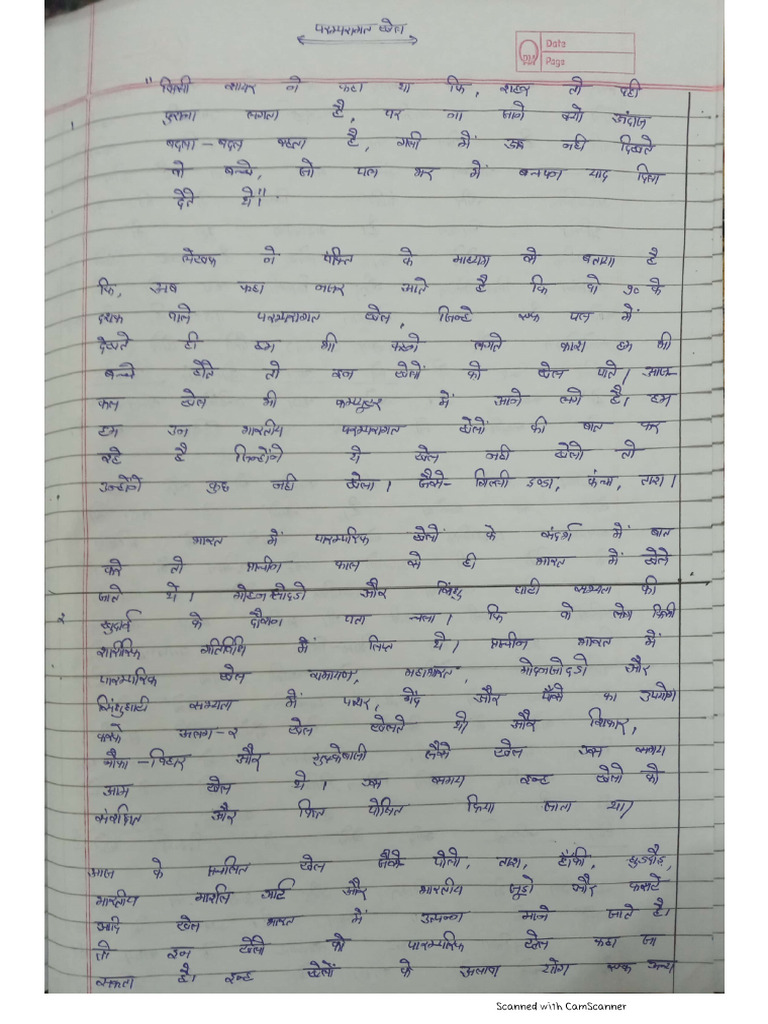 परम्परागत खेल
Date
Page
"किसी शायर ने कहा था कि, शहर तो वही
1 पुराना लगता है, पर ना जाने क्यों अंदाज
बदला-बदल रहता है, गली में अब नही दिखते
वो बच्चे, जो पल भर में बचपन याद दिला
देते थे।"
लेखक ने पंक्ति के माध्यम से बताया है
कि, अब कहा नजर आते है कि वो 90 के
दशक वाले परम्परागत खेल, जिन्हे एक पल में
देखते ही हम भी कहने लगते काश हम भी
बच्चे होते तो इन खेलों को खेल पाते। आज-
कल खेल भी कम्प्यूटर में आने लगे है। हम
हम उन भारतीय परम्परागत खेलों की बात कर
रहे है जिन्होंने ये खेल नही खेले तो
उन्होंने कुछ नही खेला। जैसे- गिल्ली डण्डा, कंचा, ताश।
भारत में पारम्परिक खेलों के संदर्भ में बात
करे तो प्राचीन काल से ही भारत में खेले
जाते थे। मोहनजोदडो और सिंधु घाटी सभ्यता की
2 खुदाई के दौरान पता चला। कि वो लोग किसी
शारीरिक गतिविधि में लिप्त थे। प्राचीन भारत में
पारम्परिक खेल रामायण, महाभारत, मोहनजोदडो और
सिंधुघाटी सभ्यता में पत्थर, गेंद और पैसे का उपयोग
करके अलग-2 खेल खेलते थे और शिकार,
नौका-विहार और मुक्केबाजी जैसे खेल उस समय
आम खेल थे। उस समय इन्ह खेलो को
संरक्षित और फिर पोषित किया जाता था।
आज के प्रचलित खेल जैसे पोलो, ताश, हॉकी, घुडदौड,
भारतीय मार्शल आर्ट और भारतीय जूडो और कराटे
आदि खेल भारत में उत्पन्न माने जाते है।
तो इन खेलो को पारम्परिक खेल कहा जा
सकता है। इन्ह खेलों के अलावा योग एक अन्य
Scanned with CamScanner